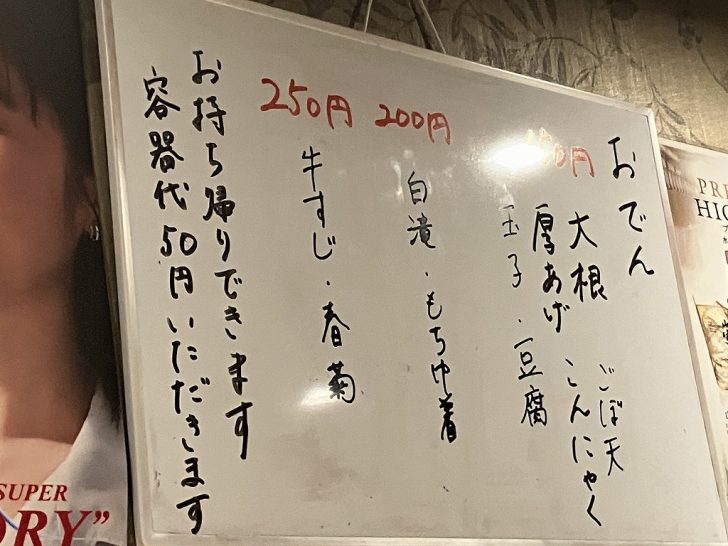 おでん
大根 ごぼ天
厚あげ こんにゃく
玉子・豆腐
200円
白滝・もちゆ着
250円
牛すじ・春菊
お持ち帰りできます
容器代50円いただきます
SUPER
DRY”
PRE
HIG